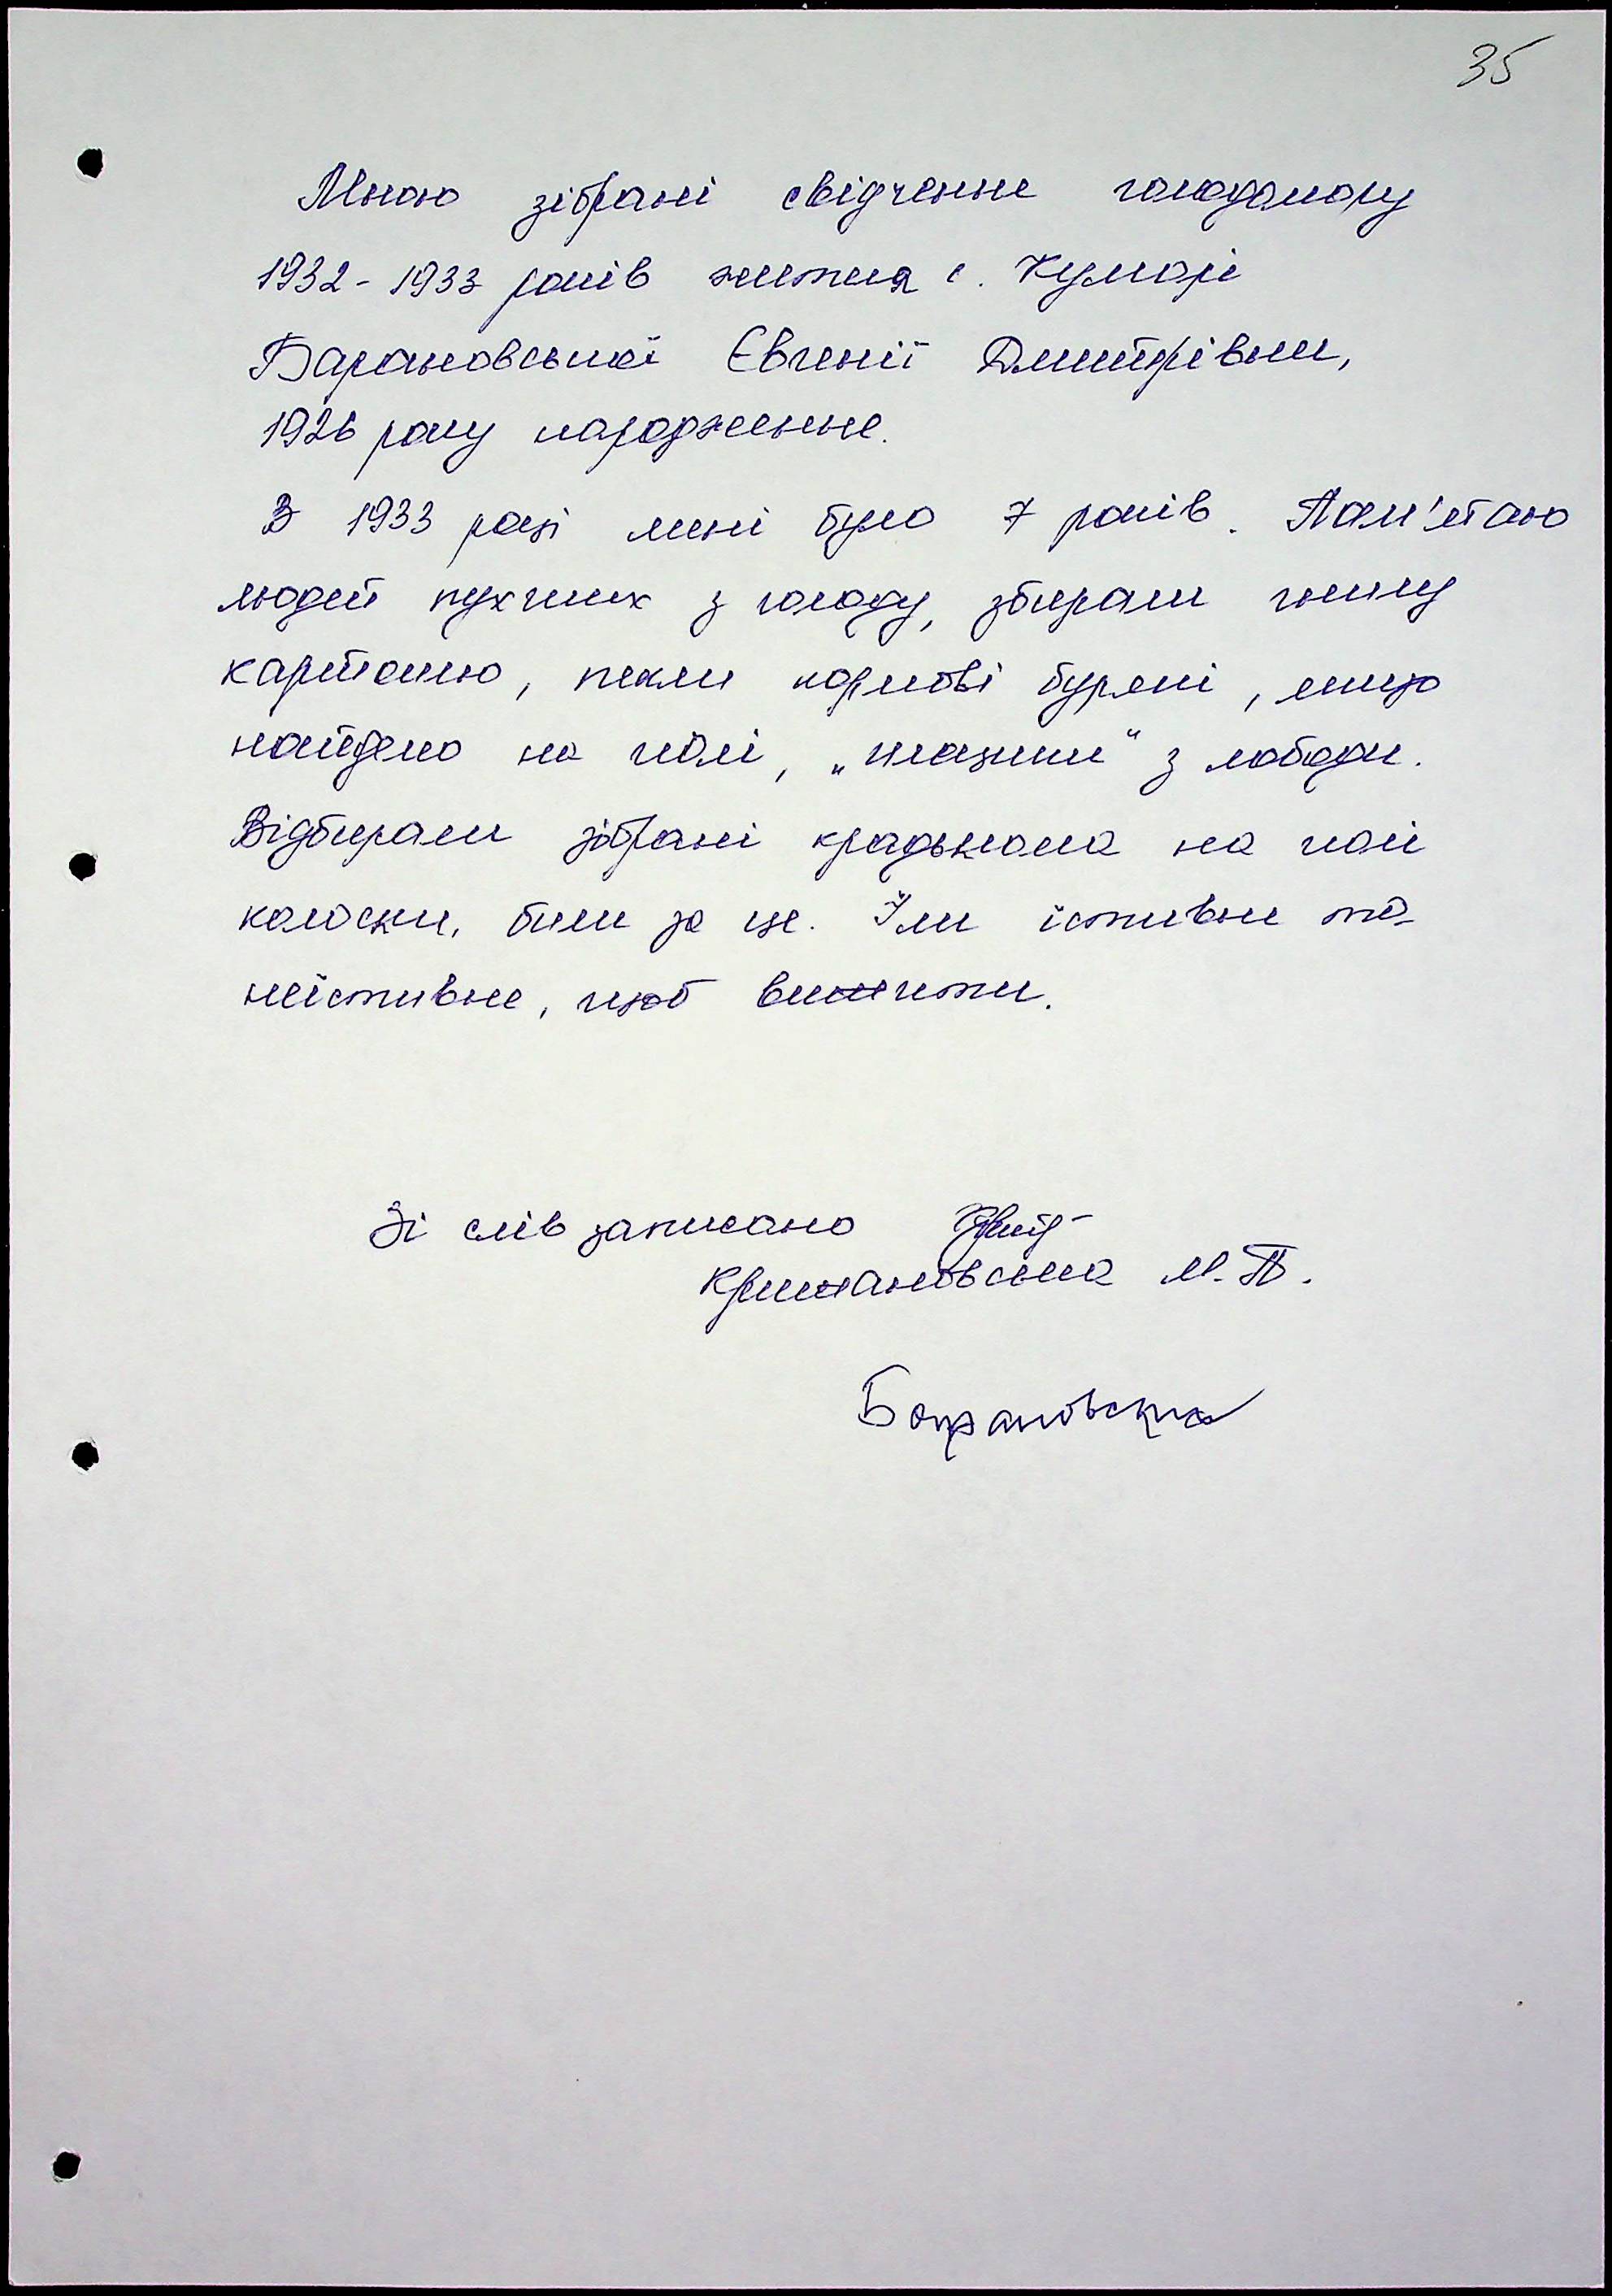 35
Мною зібрані свідчення голодомору
1932-1933 років життя с. Кумарі
Барановської Євгенії Дмитрівни,
1926 року народження.
В 1933 році мені було 7 років. Пам'ятаю
людей пухлих з голоду, збирали гнилу
картоплю, пекли кормові буряки, якщо
найдено на полі, „плацики" з лободи.
Відбирали зібрані крадькома на полі
колоски, били за це. Їли їстивне та
неїстивне, щоб вижити.
Зі слів записано
Крижановська М.П.
Барановська